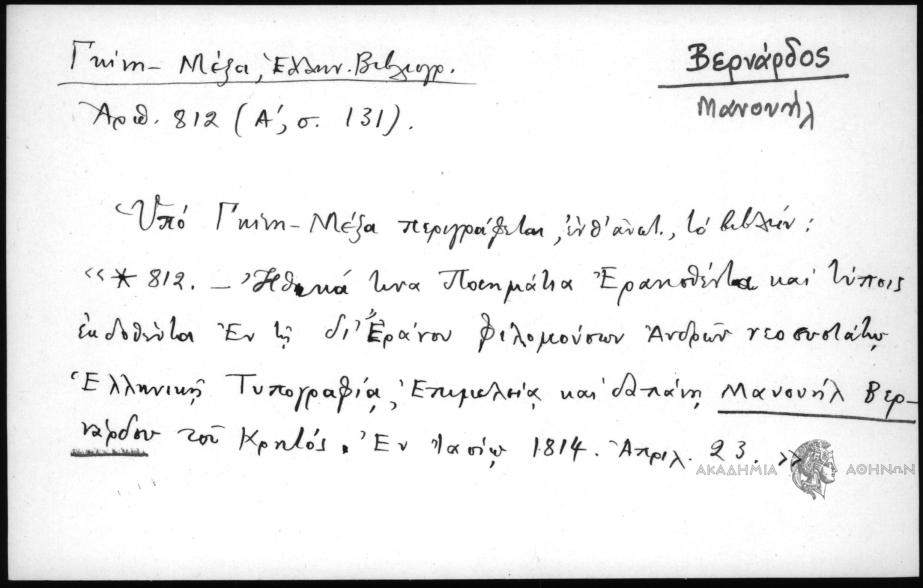 Γκίνη – Μέξα, Ἑλλην. Βιβλιογρ.
Βερνάρδος
Μανουήλ
Ἀριθ. 812 (Α΄, σ. 131).
Ὑπό Γκίνη – Μέξα περιγράφεται, ἐνθ' ἀνωτ., τό βιβλίον:
«* 812. – Ἠθικά τινα Ποιημάτια Ἐρανισθέντα καί τύποις
ἐκδοθέντα Ἐν τῇ δι' Ἐράνου φιλομούσων Ἀνδρῶν νεοσυστάτῳ
Ἑλληνικῇ Τυπογραφίᾳ, Ἐπιμελείᾳ καί δαπάνῃ Μανουήλ Βερ–
νάρδου τοῦ Κρητός. Ἐν Ἰασίῳ 1814. Ἀπριλ. 23. »
ΑΚΑΔΗΜΙΑ ΑΘΗΝΩΝ